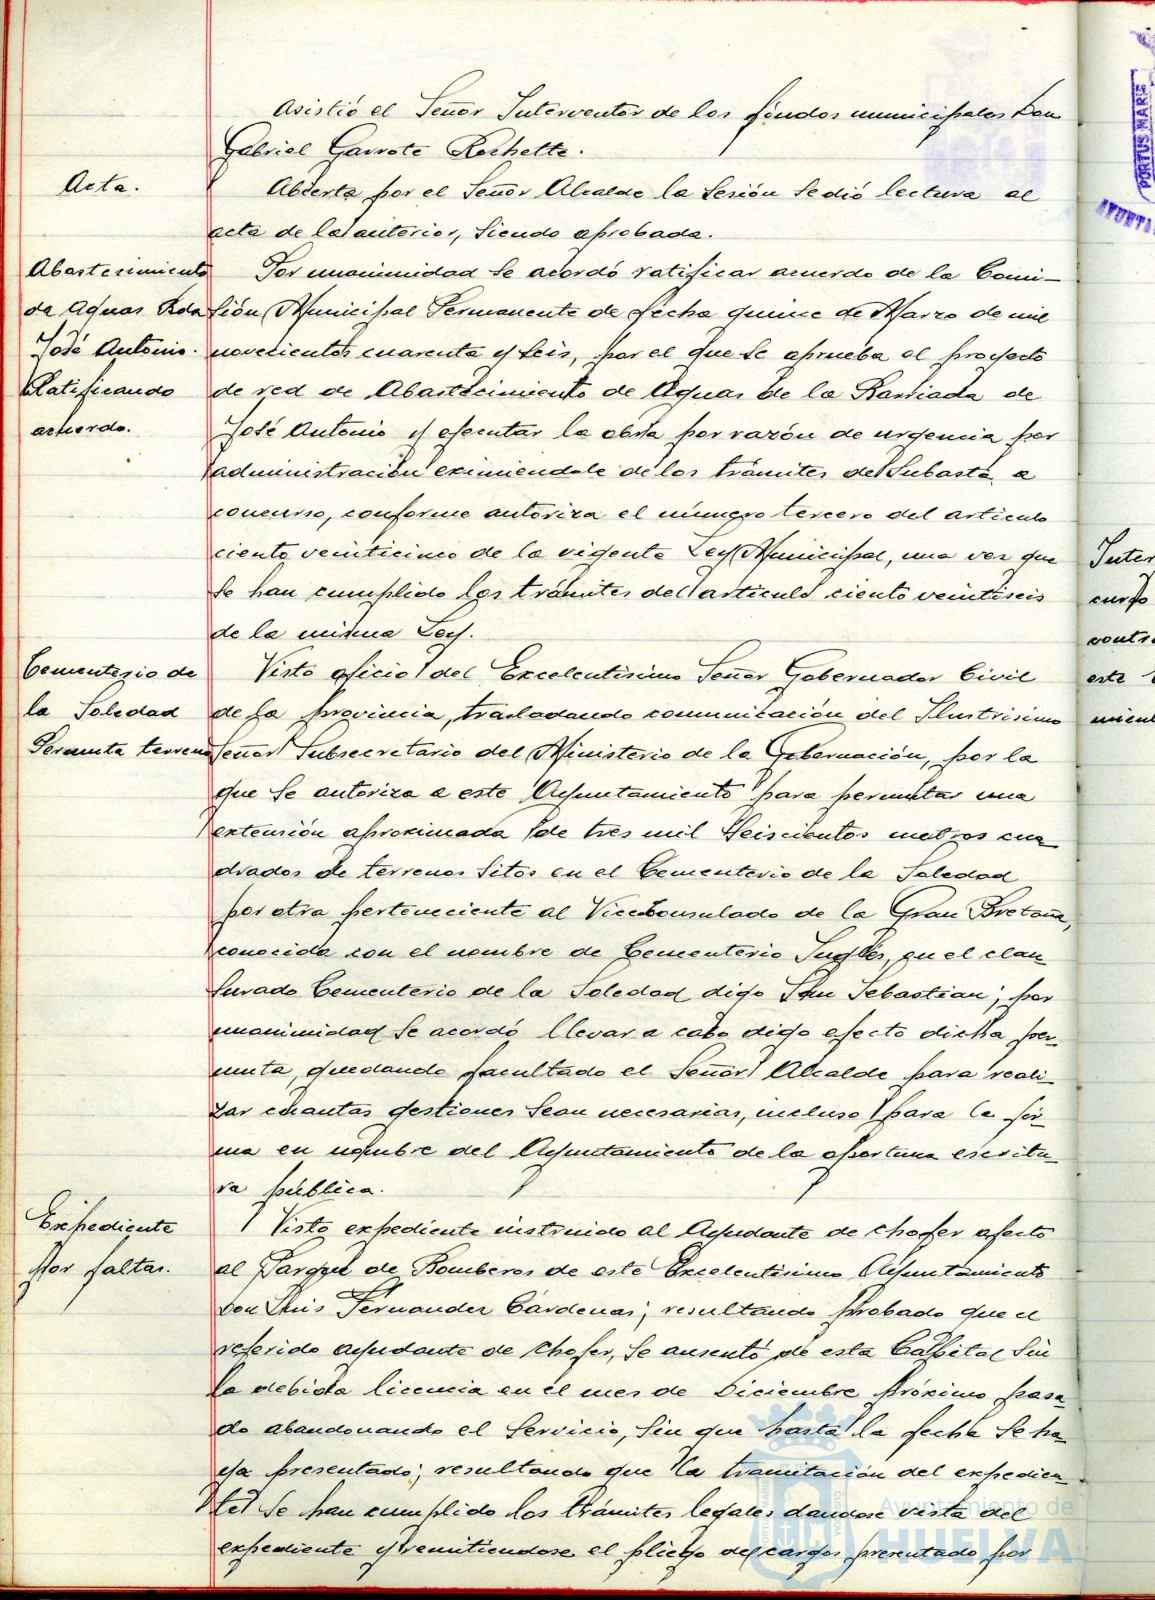 Asistió el Señor Interventor de los fondos municipales Don
Gabriel Garrote Rochette.
Acta.
Abierta por el Señor Alcalde la Sesión Se dió lectura al
acta de la anterior, Siendo aprobada.
Abastecimiento
de Aguas Bda
José Antonio.
Ratificando
acuerdo.
Por unanimidad Se acordó ratificar acuerdo de la Comi-
sión Municipal Permanente de fecha quince de Marzo de mil
novecientos cuarenta y Seis, por el que Se aprueba el proyecto
de red de Abastecimiento de Aguas de la Barriada de
José Antonio y ejecutar la obra por razón de urgencia por
administración eximiendole de los trámites de Subasta a
concurso, conforme autoriza el número tercero del articulo
ciento veinticinco de la vigente Ley Municipal, una vez que
Se han cumplido los trámites del articulo ciento veintiseis
de la misma Ley.
Cementerio de
la Soledad
Permuta terreno
Visto oficio del Excelentisimo Señor Gobernador Civil
de la provincia, trasladando comunicación del Ilustrisimo
Señor Subsecretario del Ministerio de la Gobernación, por la
que Se autoriza a este Ayuntamiento para permutar una
extensión aproximada de tres mil Seiscientos metros cua
drados de terrenos Sitos en el Cementerio de la Soledad
por otra perteneciente al Viceconsulado de la Gran Bretaña,
conocida con el nombre de Cementerio Inglés, en el clau
Surado Cementerio de la Soledad digo San Sebastian; por
unanimidad Se acordó llevar a cabo digo efecto dicha per-
muta, quedando facultado el Señor Alcalde para reali-
zar cuantas gestiones Sean necesarias, incluso para la fir-
ma en nombre del Ayuntamiento de la oportuna escritu-
ra pública.
Expediente
por faltas.
Visto expediente instruido al Ayudante de chofer afecto
al Parque de Bomberos de este Excelentisimo Ayuntamiento
Don Luis Fernandez Cárdenas; resultando probado que el
referido ayudante de chofer, Se ausentó de esta Capital Sin
la debida licencia en el mes de Diciembre próximo pasa
do abandonando el Servicio, Sin que hasta la fecha Se ha
ya presentado; resultando que la tramitación del expedien
te Se han cumplido los trámites legales dandose vista del
expediente y remitiendose el pliego de cargos presentado por
Inter
curso
contra
este
mient
PORTUS MARIS
AYUNTA
Ayuntamiento de
HUELVA